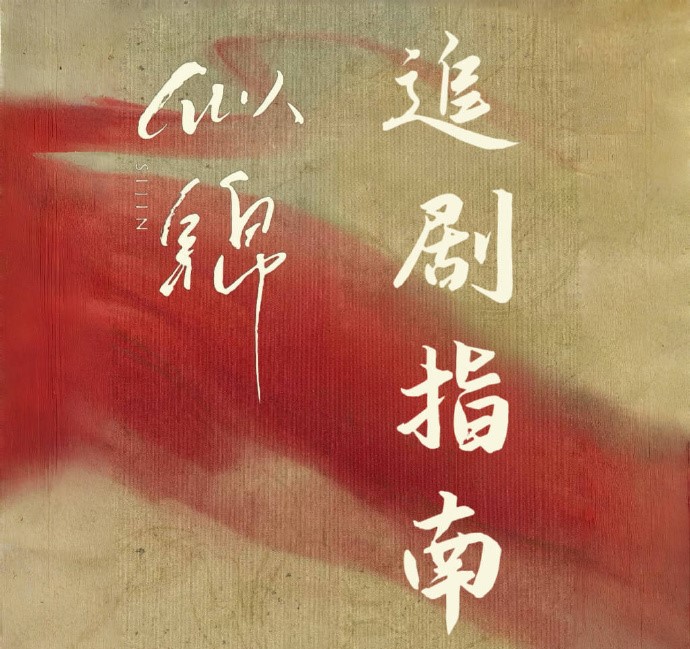 似锦
SIJIN
追剧指南